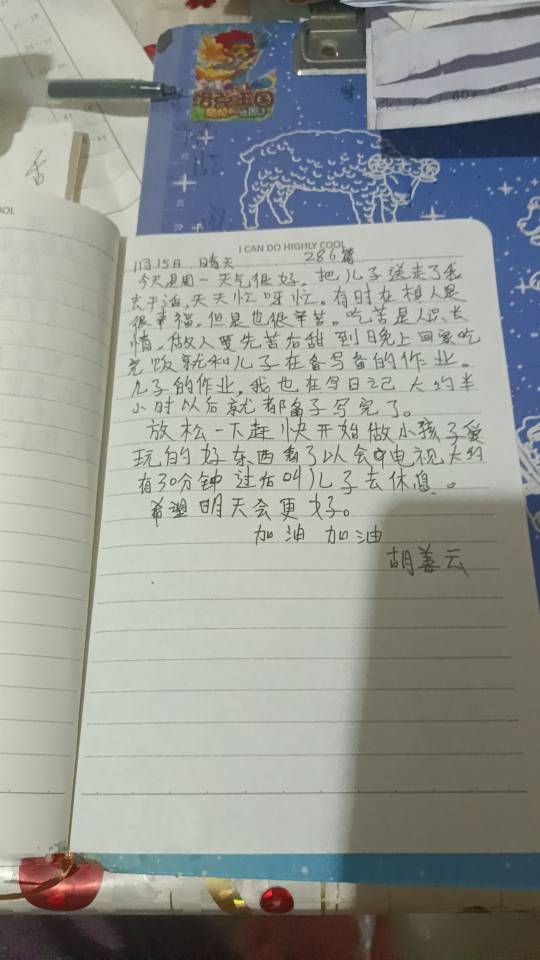 I CAN DO HIGHLY COOL
11月15日 晴天 286篇
今天是周一天气很好。把儿子送走了我
去干活,天天忙呀忙。有时在想人是
很幸福,但是也很辛苦。吃苦是人识长
情,做人要先苦后甜 到日晚上回家吃
完饭就和儿子在备写备的作业。
儿子的作业,我也在写日记 大约半
小时以后就都备子写完了。
放松一下赶快开始做小孩子爱
玩的好东西 看了以会中电视大约
有30分钟 过后叫儿子去休息。
希望明天会更好。
加油 加油
胡善云
洛克王国